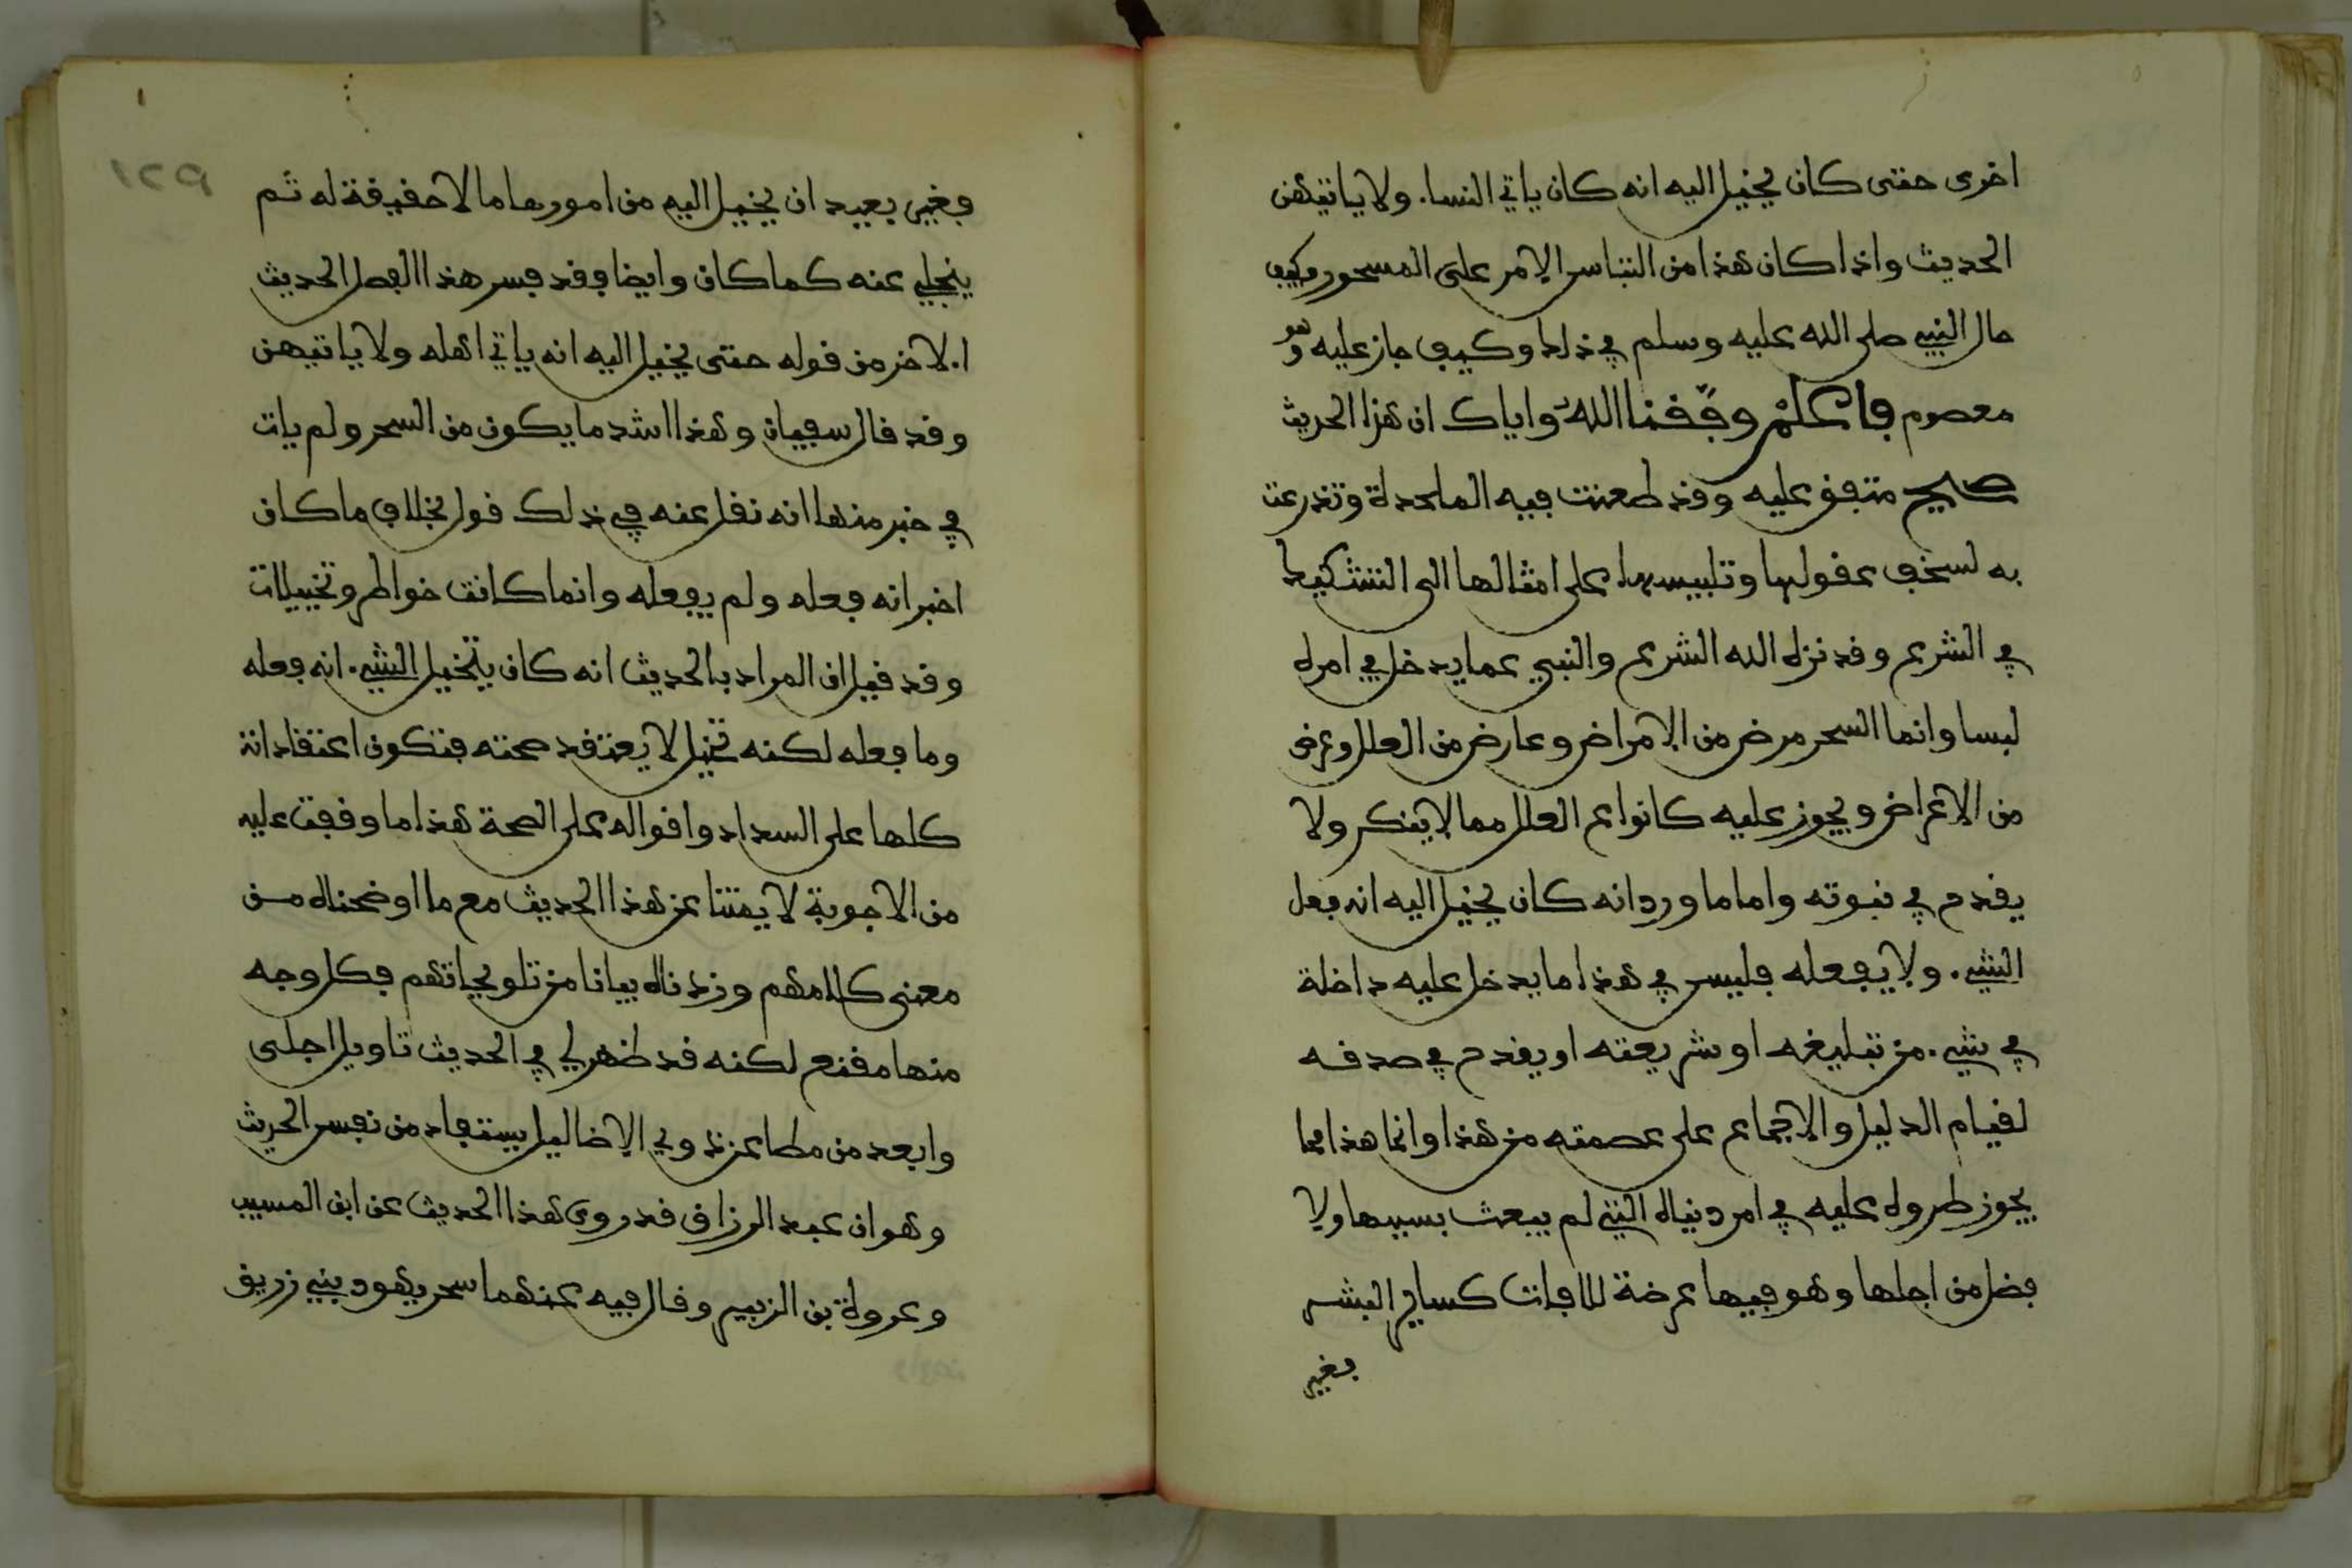 اخرى حتى كان يخيل اليه انه كان ياتي النسا. ولا ياتيهن
الحديث واذا كان هذا من التباس الامر على المسحور فكيف
حال النبي صلى الله عليه وسلم في ذلك وكيف جاز عليه وهو
معصوم فاعلم وفقنا الله واياك ان هذا الحديث
صحيح متفق عليه وقد طعنت فيه الملحدة وتذرعت
به لسخف عقولها وتلبيسها على امثالها الى التشكيك
في الشرع وقد نزه الله الشرع والنبي عما يدخل في امره
لبسا وانما السحر مرض من الامراض وعارض من العلل وعرض
من الاعراض ويجوز عليه كانواع العلل مما لا ينكر ولا
يقدح في نبوته واما ما ورد انه كان يخيل اليه انه فعل
الشيء. ولا يفعله فليس في هذا ما يدخل عليه داخلة
في شيء. من تبليغه او شريعته او يقدح في صدقه
لقيام الدليل والاجماع على عصمته من هذا وانما هذا مما
يجوز طروه عليه في امر دنياه التي لم يبعث بسببها ولا
فضل من اجلها وهو فيها عرضة للافات كساير البشر
فغير
١٢٩
فغير بعيد ان يخيل اليه من امورها ما لا حقيقة له ثم
ينجلي عنه كما كان وايضا فقد فسر هذا الفصل الحديث
الاخر من قوله حتى يخيل اليه انه ياتي اهله ولا ياتيهن
وقد قال سفيان وهذا اشد ما يكون من السحر ولم يات
في خبر منها انه نقل عنه في ذلك قول بخلاف ما كان
اخبر انه فعله ولم يفعله وانما كانت خواطر وتخييلات
وقد قيل ان المراد بالحديث انه كان يتخيل الشيء. انه فعله
وما فعله لكنه تخيل لا يعتقد صحته فتكون اعتقاداته
كلها على السداد واقواله على الصحة هذا ما وقفت عليه
من الاجوبة لايمتنا عن هذا الحديث مع ما اوضحناه من
معنى كلامهم وزدناه بيانا من تلويحاتهم فكل وجه
منها مقنع لكنه قد ظهر لي في الحديث تاويل اجلى
وابعد من مطاعن ذوي الاضاليل يستفاد من نفس الحديث
وهو ان عبد الرزاق قد روى هذا الحديث عن ابن المسيب
وعروة بن الزبير وقال فيه عنهما سحر يهود بني زريق